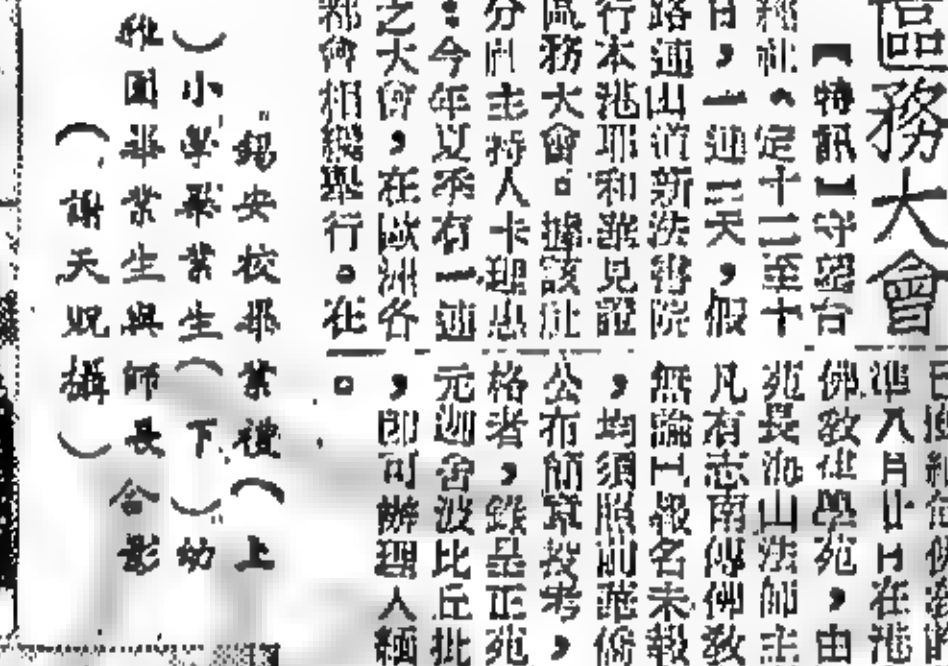 區務大會
【特訊】守望台
社，定十二至十
日，一連三天，假
路連山道新法書院
行本港耶和華見證
區務大會。據該社
分區主持人卡理忠
：今年夏季有一連
之大會，在歐洲各
都會相繼舉行。在
準八月廿日在港
佛敎 學苑，由
苑長海山法師主
凡有志南傳佛敎
無論已報名未報
，均須照前 僑
公布簡章投考，
格者，錄 正苑
元 舍波比丘批
，即可辦理入緬
。
錫安校畢業禮（上
）小學畢業生（下）幼
稚園畢業生與師長合影
（謝天貺攝）